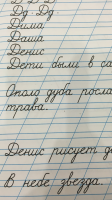 Дд. Дд.
Дима
Даша
Денис
Дети были в са
Около дуба росла
трава.
Денис рисует д
В небе звезда.